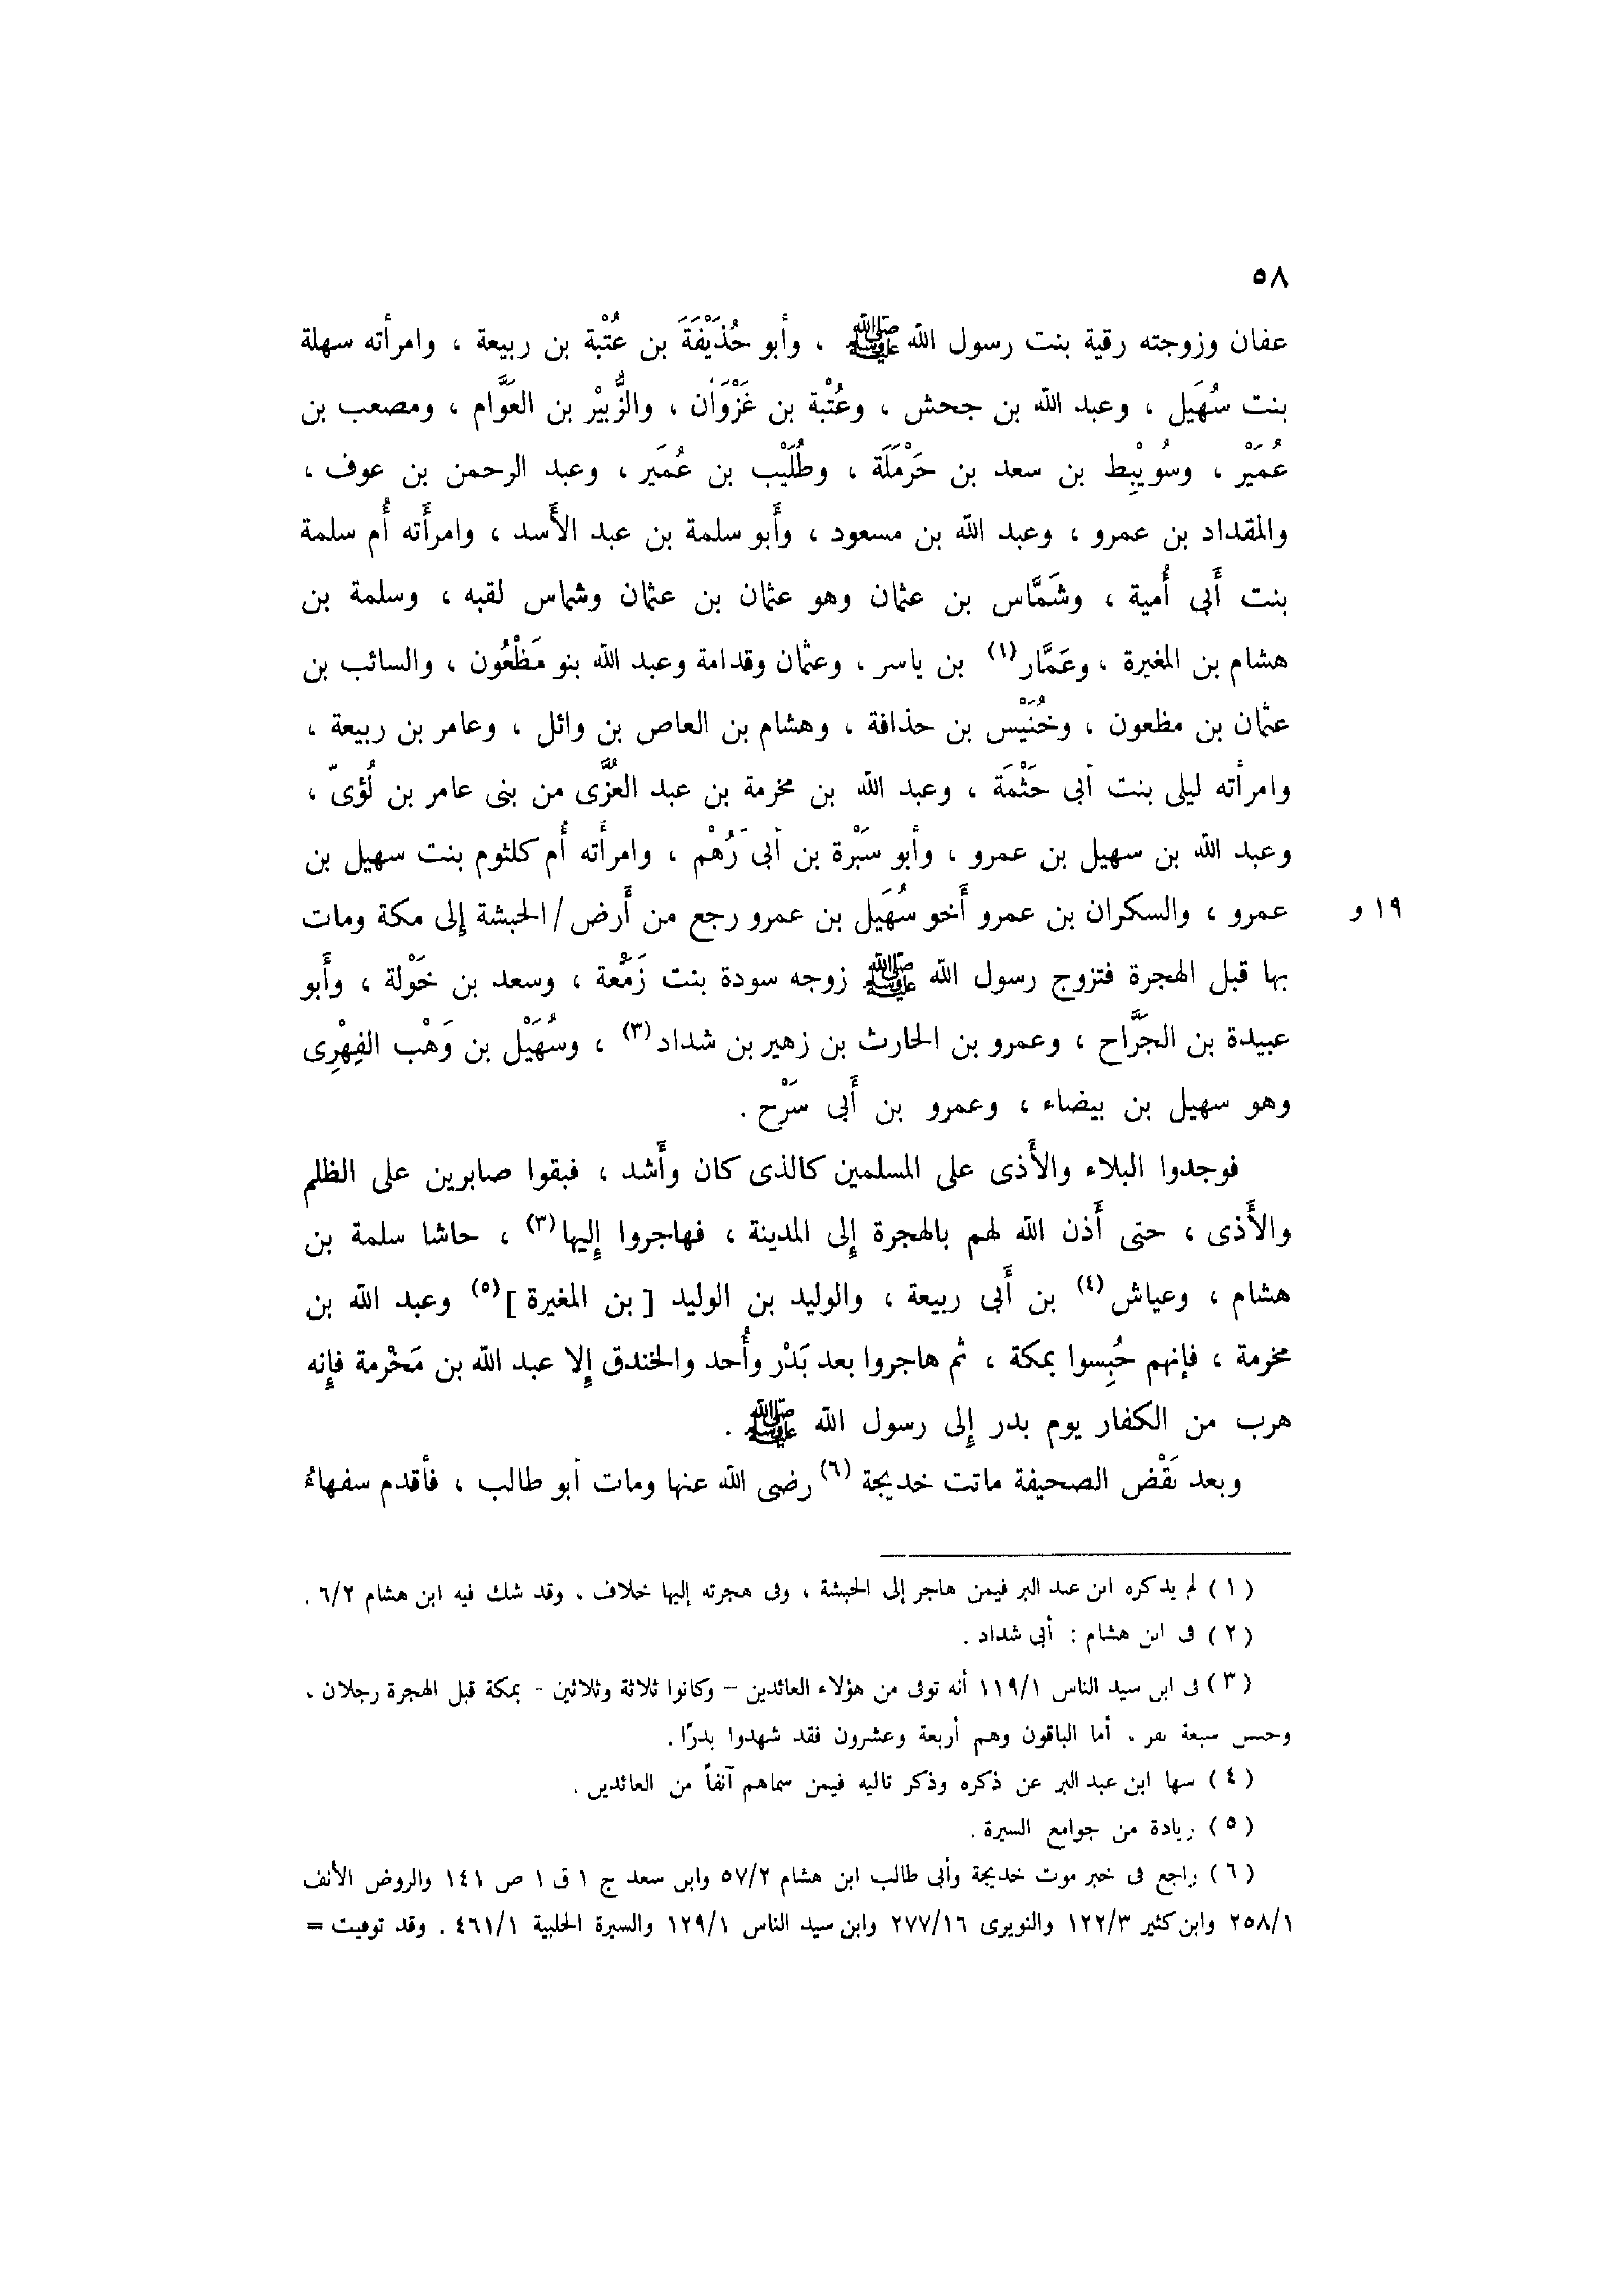 ٥٨
عفان وزوجته رقية بنت رسول الله ﷺ ، وأبو حُذَيْفَةَ بن عُتْبة بن ربيعة ، وامرأته سهلة
بنت سُهَيل ، وعبد الله بن جحش ، وعُتْبة بن غَزْوَان ، والزُّبيْر بن العَوَّام ، ومصعب بن
عُمَيْر ، وسُويْبِط بن سعد بن حَرْمَلَة ، وطُلَيْب بن عُمَير ، وعبد الرحمن بن عوف ،
والمقداد بن عمرو ، وعبد الله بن مسعود ، وأَبو سلمة بن عبد الأَسد ، وامرأَته أُم سلمة
بنت أَبى أُمية ، وشَمَّاس بن عثمان وهو عثمان بن عثمان وشماس لقبه ، وسلمة بن
هشام بن المغيرة ، وعَمَّار (١) بن ياسر ، وعثمان وقدامة وعبد الله بنو مَظْعُون ، والسائب بن
عثمان بن مظعون ، وخُنَيْس بن حذافة ، وهشام بن العاص بن وائل ، وعامر بن ربيعة ،
وامرأته ليلى بنت أبى حَثْمَة ، وعبد الله بن مخرمة بن عبد العُزَّى من بنى عامر بن لُؤىّ ،
وعبد الله بن سهيل بن عمرو ، وأبو سَبْرة بن أبى رُهْم ، وامرأَته أُم كلثوم بنت سهيل بن
عمرو ، والسكران بن عمرو أَخو سُهَيل بن عمرو رجع من أَرض / الحبشة إِلى مكة ومات ١٩ و
بها قبل الهجرة فتزوج رسول الله ﷺ زوجه سودة بنت زَمْعة ، وسعد بن خَوْلة ، وأَبو
عبيدة بن الجَرَّاح ، وعمرو بن الحارث بن زهير بن شداد (٣) ، وسُهَيْل بن وَهْب الفِهْرِى
وهو سهيل بن بيضاء ، وعمرو بن أَبى سَرْح .
فوجدوا البلاء والأَذى على المسلمين كالذى كان وأَشد ، فبقوا صابرين على الظلم
والأَذى ، حتى أَذن الله لهم بالهجرة إِلى المدينة ، فهاجروا إِليها (٣) ، حاشا سلمة بن
هشام ، وعياش (٤) بن أَبى ربيعة ، والوليد بن الوليد [ بن المغيرة ] (٥) وعبد الله بن
مخرمة ، فإنهم حُبِسوا بمكة ، ثم هاجروا بعد بَدْر وأُحد والخندق إِلا عبد الله بن مَخْرمة فإِنه
هرب من الكفار يوم بدر إِلى رسول الله ﷺ .
وبعد نَقْض الصحيفة ماتت خديجة (٦) رضى الله عنها ومات أبو طالب ، فأقدم سفهاءُ
(١) لم يذكره ابن عبد البر فيمن هاجر إلى الحبشة ، وفى هجرته إليها خلاف ، وقد شك فيه ابن هشام ٦/٢ .
(٢) فى ابن هشام : أبى شداد .
(٣) فى ابن سيد الناس ١١٩/١ أنه توفى من هؤلاء العائدين – وكانوا ثلاثة وثلاثين - بمكة قبل الهجرة رجلان ،
وحبس سبعة نفر . أما الباقون وهم أربعة وعشرون فقد شهدوا بدرًا .
(٤) سها ابن عبد البر عن ذكره وذكر تاليه فيمن سماهم آنفاً من العائدين .
(٥) زيادة من جوامع السيرة .
(٦) راجع فى خبر موت خديجة وأبى طالب ابن هشام ٥٧/٢ وابن سعد ج ١ ق ١ ص ١٤١ والروض الأنف
٢٥٨/١ وابن كثير ١٢٢/٣ والنويرى ٢٧٧/١٦ وابن سيد الناس ١٢٩/١ والسيرة الحلبية ٤٦١/١ . وقد توفيت =